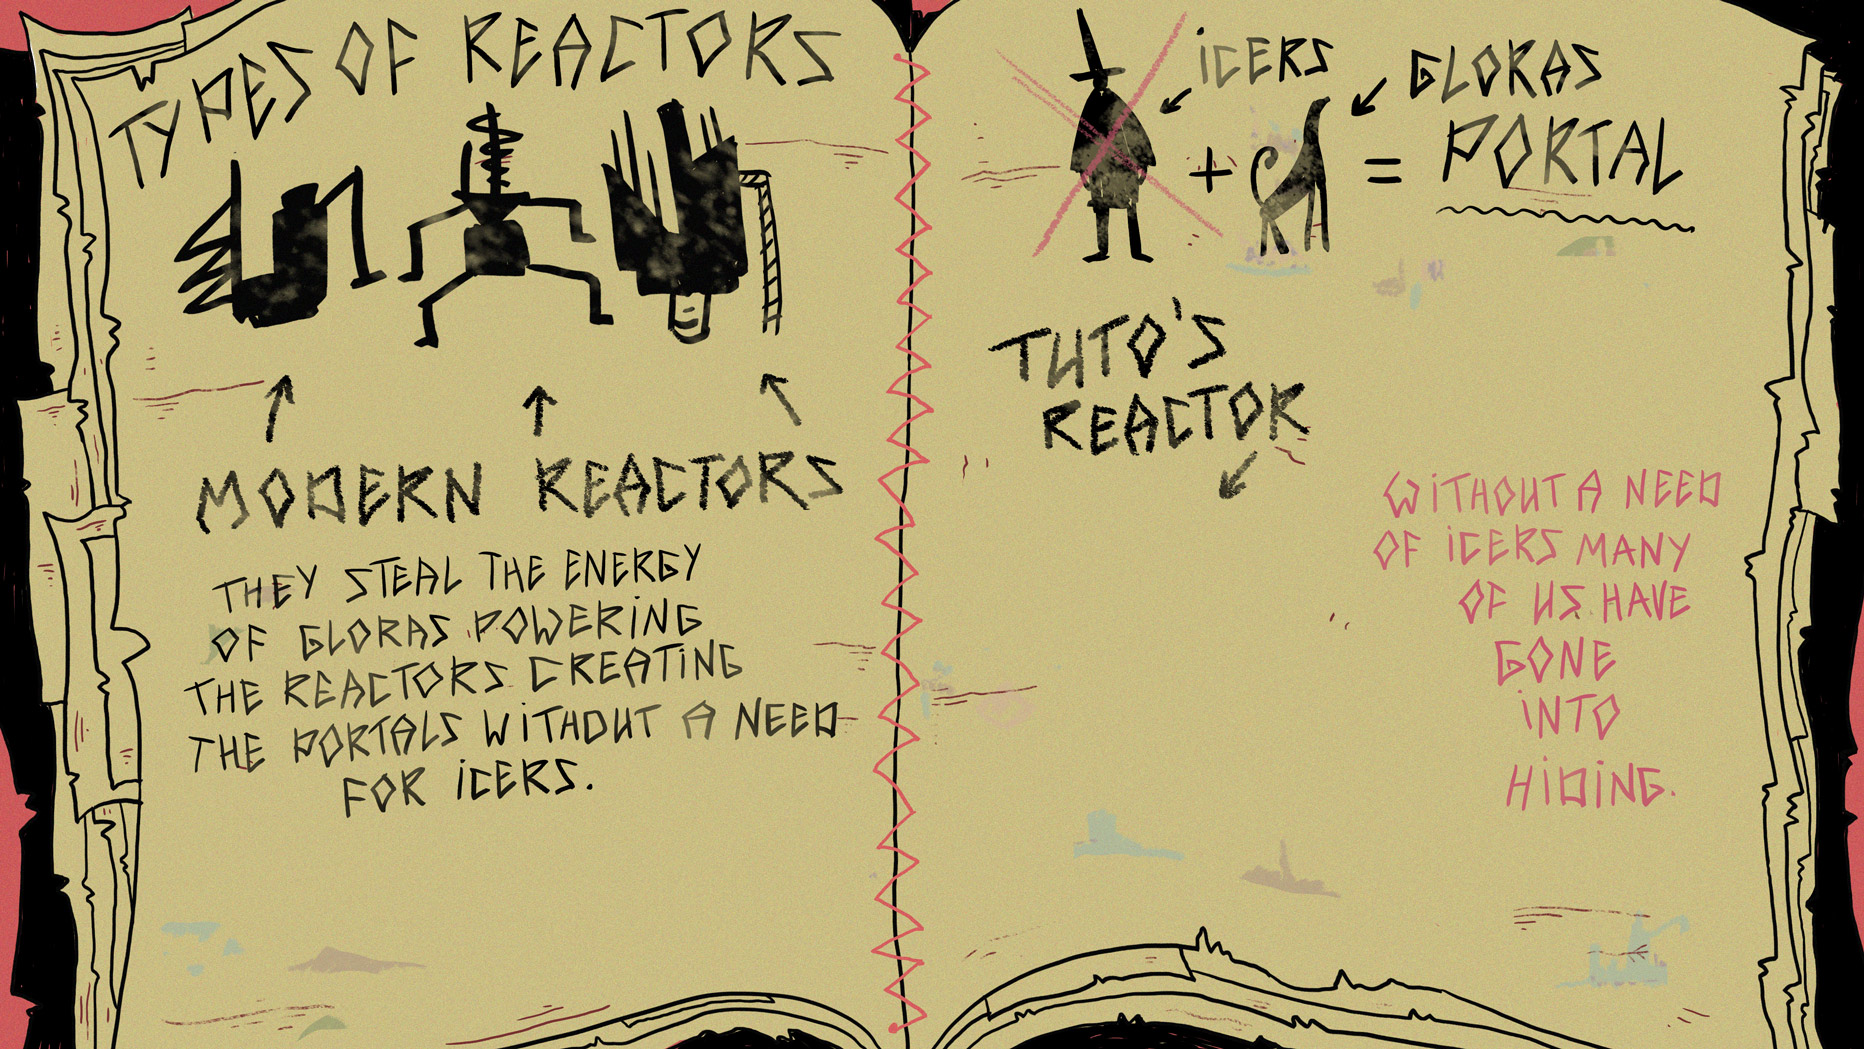 TYPES OF REACTORS
MODERN REACTORS
THEY STEAL THE ENERGY
OF GLORAS POWERING
THE REACTORS CREATING
THE PORTALS WITHOUT A NEED
FOR ICERS.
ICERS
GLORAS
+ = PORTAL
TUTO'S
REACTOR
WITHOUT A NEED
OF ICERS MANY
OF US HAVE
GONE
INTO
HIDING.